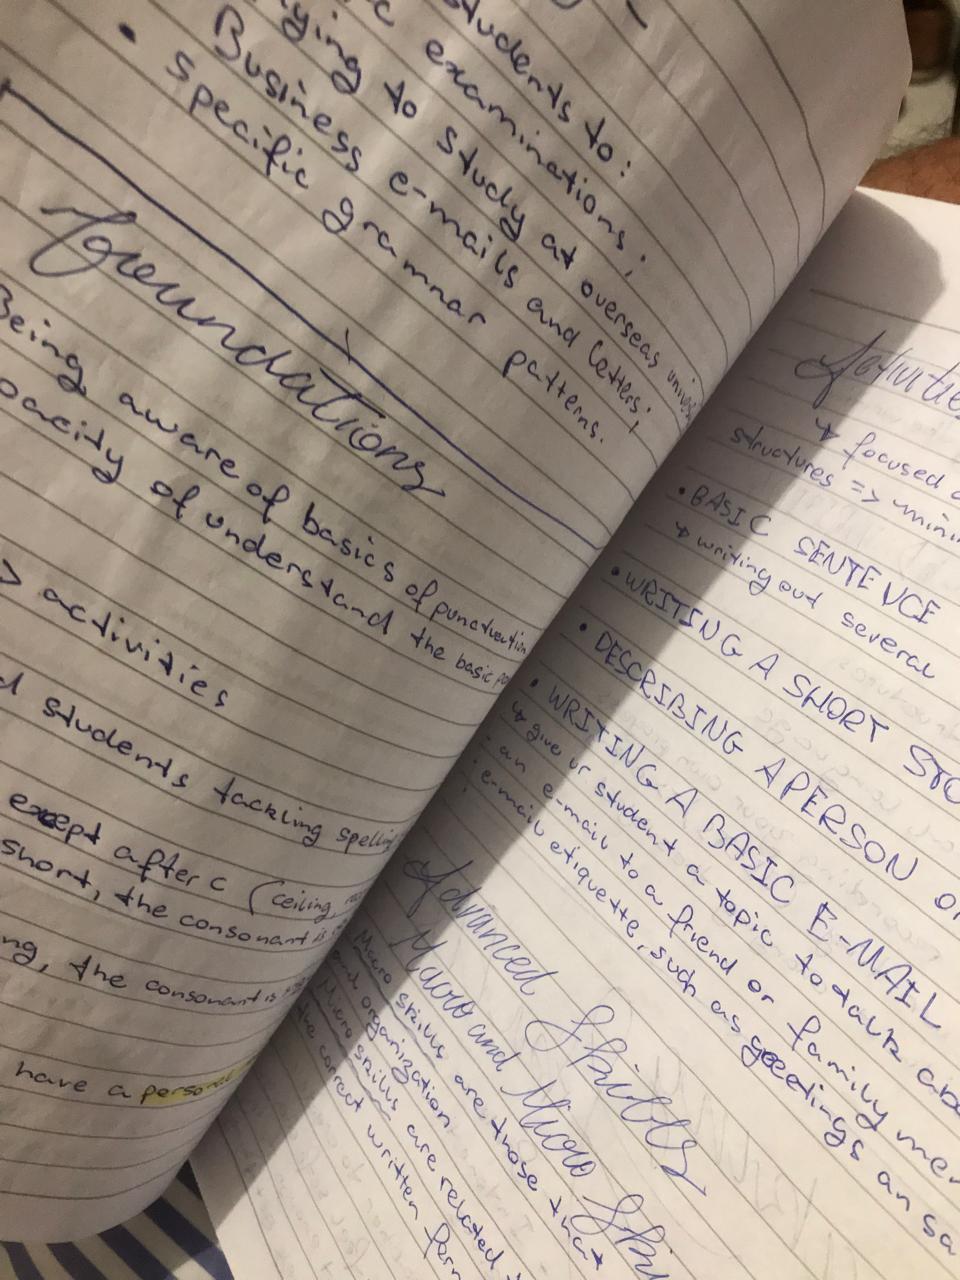 students to:
examinations;
ying to study at overseas
Business e-mails and letters;
• specific grammar patterns.
Foundations
Being aware of basics of punctuation
pacity of understand the basic
> activities
d students tackling spelling
except after c (ceiling,
short, the consonant is
ng, the consonant is
have a personal
↳ focused
structures =>
• BASIC SENTENCE
↳ writing out several
• WRITING A SHORT STO
• DESCRIBING A PERSON O
• WRITING A BASIC E-MAIL
↳ give ur student a topic to talk abo
an e-mail to a friend or family mem
e-mail etiquette, such as geeetings an sa
Advanced Skills
Macro and Micro Ski
Macro skills are those that
and organization
Micro skills are related t
the correct written form